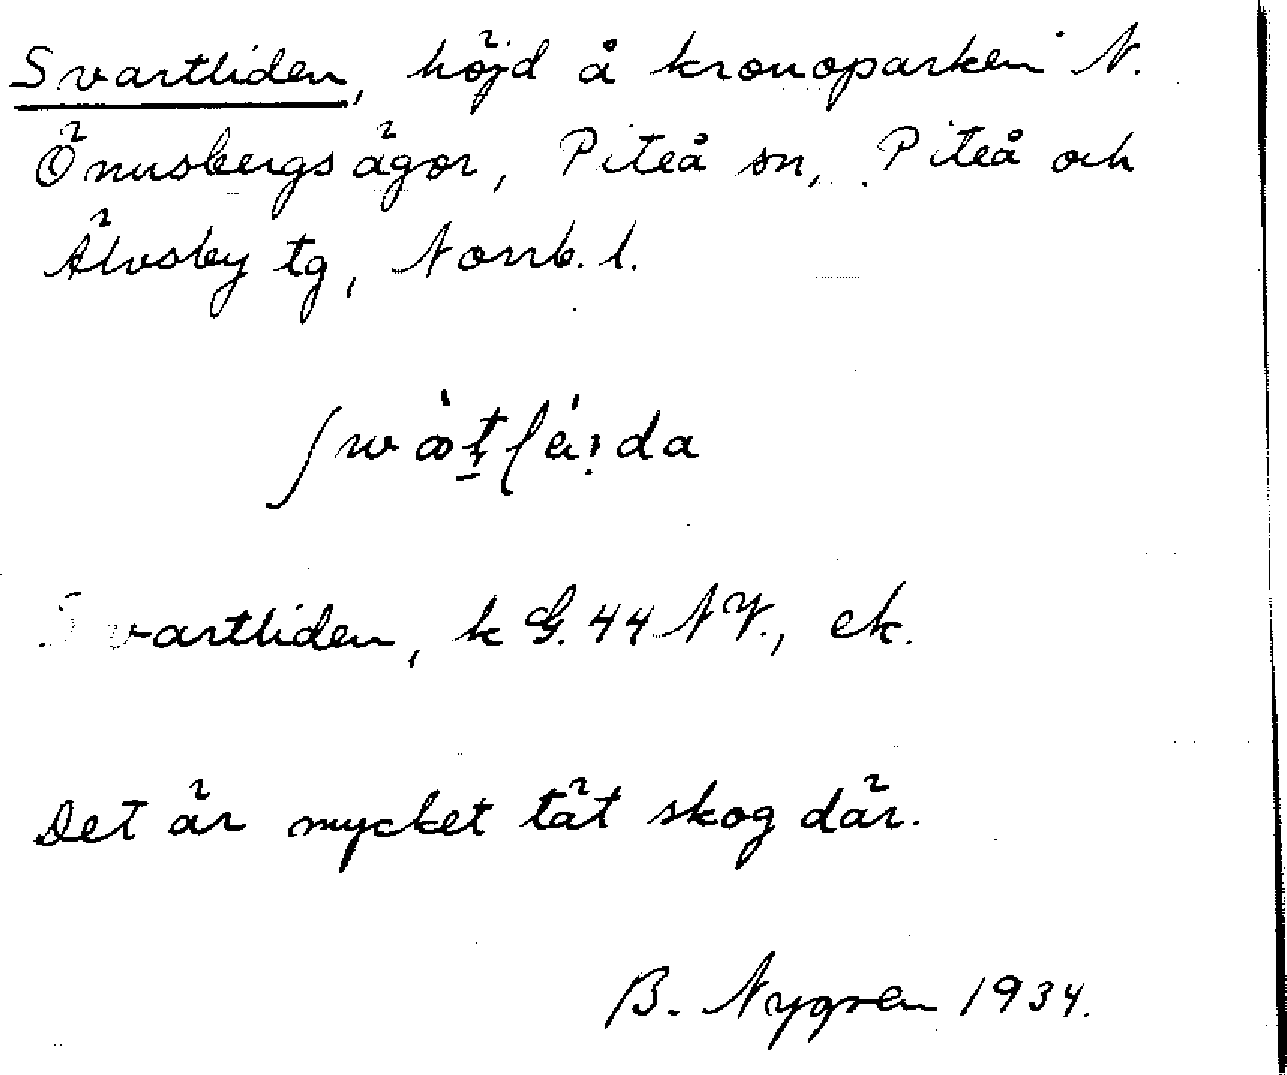 Svartliden, höjd å kronoparken N.
Önusbergs ägor, Piteå sn, Piteå och
Älvsby tg, Norrb. l.
Svartliden, k G. 44 NV., ek.
Det är mycket tät skog där.
B. Nygren 1934.